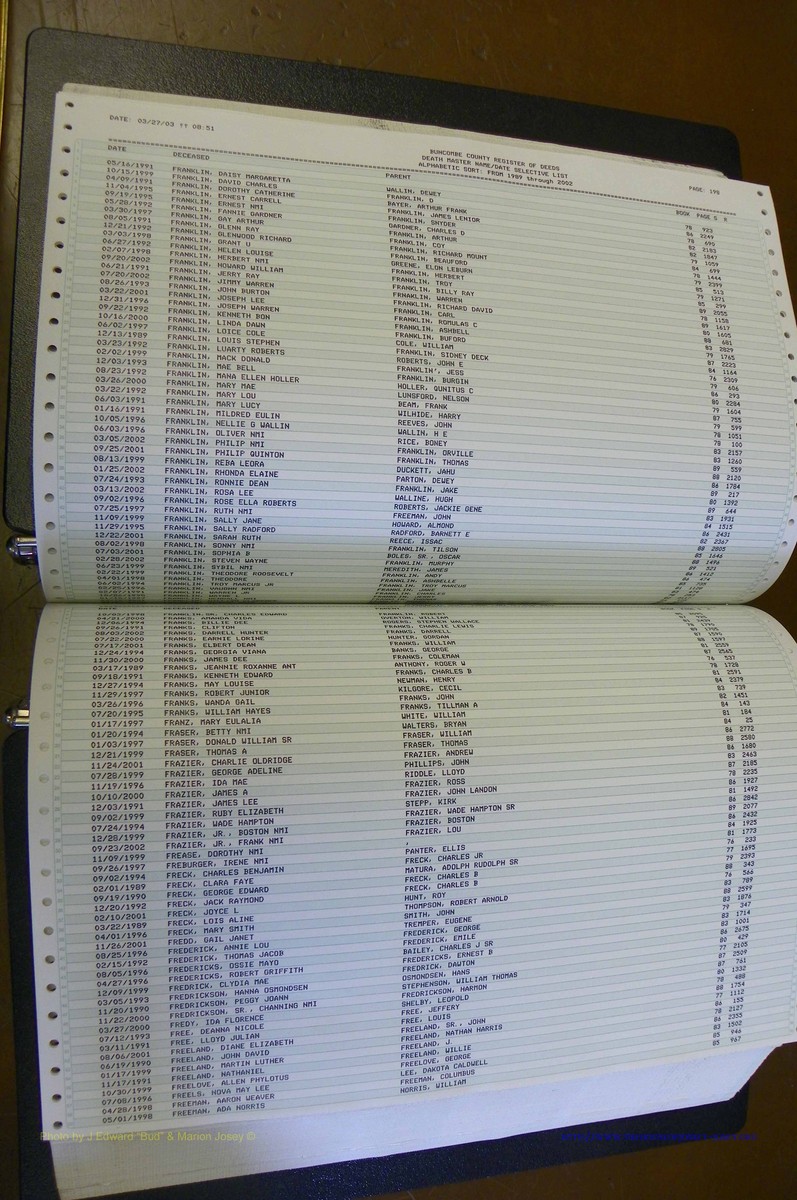 DATE: 03/27/03 ‼ 08:51
BUNCOMBE COUNTY REGISTER OF DEEDS
DEATH MASTER NAME/DATE SELECTIVE LIST
ALPHABETIC SORT: FROM 1989 through 2002
PAGE: 198
DATE DECEASED PARENT BOOK PAGE S R
05/16/1991 FRANKLIN, DAISY MARGARETTA WALLIN, DEWEY 78 923
10/15/1999 FRANKLIN, DAVID CHARLES FRANKLIN, D 86 2249
04/09/1991 FRANKLIN, DOROTHY CATHERINE BAYER, ARTHUR FRANK 78 695
11/04/1995 FRANKLIN, ERNEST CARRELL FRANKLIN, JAMES LENIOR 82 2183
09/19/1995 FRANKLIN, ERNEST NMI FRANKLIN, SNYDER 82 1847
05/28/1992 FRANKLIN, FANNIE GARDNER GARDNER, CHARLES D 79 1059
03/30/1997 FRANKLIN, GAY ARTHUR FRANKLIN, ARTHUR 84 699
08/05/1991 FRANKLIN, GLENN RAY FRANKLIN, COY 78 1444
12/21/1992 FRANKLIN, GLENWOOD RICHARD FRANKLIN, RICHARD MOUNT 79 2399
03/03/1998 FRANKLIN, GRANT U FRANKLIN, BEAUFORD 85 513
06/27/1992 FRANKLIN, HELEN LOUISE GREENE, ELON LEBURN 79 1271
02/07/1998 FRANKLIN, HERBERT NMI FRANKLIN, HERBERT 85 299
09/20/2002 FRANKLIN, HOWARD WILLIAM FRANKLIN, TROY 89 2055
06/21/1991 FRANKLIN, JERRY RAY FRANKLIN, BILLY RAY 78 1158
07/20/2002 FRANKLIN, JIMMY WARREN FRANKLIN, WARREN 89 1617
08/26/1993 FRANKLIN, JOHN BURTON FRANKLIN, RICHARD DAVID 80 1605
03/22/2001 FRANKLIN, JOSEPH LEE FRANKLIN, CARL 88 681
12/31/1996 FRANKLIN, JOSEPH WARREN FRANKLIN, ROMULAS C 83 2829
09/22/1992 FRANKLIN, KENNETH BON FRANKLIN, ASHBELL 79 1765
10/16/2000 FRANKLIN, LINDA DAWN FRANKLIN, BUFORD 87 2223
06/02/1997 FRANKLIN, LOICE COLE COLE, WILLIAM 84 1164
12/13/1989 FRANKLIN, LOUIS STEPHEN FRANKLIN, SIDNEY DECK 76 2309
03/23/1992 FRANKLIN, LUARTY ROBERTS ROBERTS, JOHN E 79 606
02/02/1999 FRANKLIN, MACK DONALD FRANKLIN', JESS 86 293
12/03/1993 FRANKLIN, MAE BELL FRANKLIN, BURGIN 80 2284
08/23/1992 FRANKLIN, MANA ELLEN HOLLER HOLLER, GUNITUS C 79 1604
03/26/2000 FRANKLIN, MARY MAE LUNSFORD, NELSON 87 755
03/22/1992 FRANKLIN, MARY LOU BEAM, FRANK 79 599
06/03/1991 FRANKLIN, MARY LUCY WILHIDE, HARRY 78 1051
01/16/1991 FRANKLIN, MILDRED EULIN REEVES, JOHN 78 100
10/05/1996 FRANKLIN, NELLIE G WALLIN WALLIN, H E 83 2157
06/03/1996 FRANKLIN, OLIVER NMI RICE, BONEY 83 1260
03/05/2002 FRANKLIN, PHILIP NMI FRANKLIN, ORVILLE 89 559
09/25/2001 FRANKLIN, PHILIP QUINTON FRANKLIN, THOMAS 88 2120
08/13/1999 FRANKLIN, REBA LEORA DUCKETT, JAHU 86 1784
01/25/2002 FRANKLIN, RHONDA ELAINE PARTON, DEWEY 89 217
07/24/1993 FRANKLIN, RONNIE DEAN FRANKLIN, JAKE 80 1392
03/13/2002 FRANKLIN, ROSA LEE WALLINE, HUGH 89 644
09/02/1996 FRANKLIN, ROSE ELLA ROBERTS ROBERTS, JACKIE GENE 83 1931
07/25/1997 FRANKLIN, RUTH NMI FREEMAN, JOHN 84 1515
11/09/1999 FRANKLIN, SALLY JANE HOWARD, ALMOND 86 2431
11/29/1995 FRANKLIN, SALLY RADFORD RADFORD, BARNETT E 82 2367
12/22/2001 FRANKLIN, SARAH RUTH REECE, ISSAC 88 2805
08/02/1998 FRANKLIN, SONNY NMI FRANKLIN, TILSON 85 1646
07/03/2001 FRANKLIN, SOPHIA B BOLES, SR., OSCAR 88 1496
02/28/2002 FRANKLIN, STEVEN WAYNE FRANKLIN, MURPHY 89 521
06/23/1999 FRANKLIN, SYBIL NMI MEREDITH, JAMES 86 1412
02/22/1999 FRANKLIN, THEODORE ROOSEVELT FRANKLIN, ANDY 86 474
04/01/1998 FRANKLIN, THEODORE FRANKLIN, ASHBELLE
06/02/1994 FRANKLIN, TROY MARCUS JR FRANKLIN, TROY MARCUS
DATE DECEASED PARENT
10/03/1998 FRANKLIN, SR., CHARLES EDWARD FRANKLIN, ROBERT
04/21/2000 FRANKS, AMANDA VIDA OVERTON, WILLIAM
12/06/1994 FRANKS, BILLIE DEE ROGERS, STEPHEN WALLACE
09/26/1991 FRANKS, CLIFTON FRANKS, CHARLIE LEWIS
08/03/2002 FRANKS, DARRELL HUNTER FRANKS, DARRELL
07/22/2000 FRANKS, EARNIE LORINE HUNTER, GORDAN 87 1597
07/17/2001 FRANKS, ELBERT DEAN FRANKS, WILLIAM
12/24/1994 FRANKS, GEORGIA VIANA BANKS, GEORGE 81 2559
11/30/2000 FRANKS, JAMES DEE FRANKS, COLEMAN 87 2565
03/17/1989 FRANKS, JEANNIE ROXANNE ANT ANTHONY, ROGER W 76 537
09/18/1991 FRANKS, KENNETH EDWARD FRANKS, CHARLES B 78 1728
12/27/1994 FRANKS, MAY LOUISE NEWMAN, HENRY 81 2591
11/29/1997 FRANKS, ROBERT JUNIOR KILGORE, CECIL 84 2379
03/26/1996 FRANKS, WANDA GAIL FRANKS, JOHN 83 739
07/20/1995 FRANKS, WILLIAM HAYES FRANKS, TILLMAN A 82 1451
01/17/1997 FRANZ, MARY EULALIA WHITE, WILLIAM 84 143
01/20/1994 FRASER, BETTY NMI WALTERS, BRYAN 81 184
01/03/1997 FRASER, DONALD WILLIAM SR FRASER, WILLIAM 84 25
12/21/1999 FRASER, THOMAS A FRASER, THOMAS 86 2772
11/24/2001 FRAZIER, CHARLIE OLDRIDGE FRAZIER, ANDREW 88 2580
07/28/1999 FRAZIER, GEORGE ADELINE PHILLIPS, JOHN 86 1680
11/19/1996 FRAZIER, IDA MAE RIDDLE, LLOYD 83 2463
10/10/2000 FRAZIER, JAMES A FRAZIER, ROSS 87 2185
12/03/1991 FRAZIER, JAMES LEE FRAZIER, JOHN LANDON 78 2235
09/02/1999 FRAZIER, RUBY ELIZABETH STEPP, KIRK 86 1927
07/24/1994 FRAZIER, WADE HAMPTON FRAZIER, WADE HAMPTON SR 81 1492
12/28/1999 FRAZIER, JR., BOSTON NMI FRAZIER, BOSTON 86 2842
09/23/2002 FRAZIER, JR., FRANK NMI FRAZIER, LOU 89 2077
11/09/1999 FREASE, DOROTHY NMI , 86 2432
09/26/1997 FREBURGER, IRENE NMI PANTER, ELLIS 84 1925
09/02/1994 FRECK, CHARLES BENJAMIN FRECK, CHARLES JR 81 1773
02/01/1989 FRECK, CLARA FAYE MATURA, ADOLPH RUDOLPH SR 76 233
09/19/1990 FRECK, GEORGE EDWARD FRECK, CHARLES B 77 1695
12/20/1992 FRECK, JACK RAYMOND FRECK, CHARLES B 79 2393
02/10/2001 FRECK, JOYCE L HUNT, ROY 88 343
03/22/1989 FRECK, LOIS ALINE THOMPSON, ROBERT ARNOLD 76 566
04/01/1996 FRECK, MARY SMITH SMITH, JOHN 83 789
11/26/2001 FREDD, GAIL JANET TREMPER, EUGENE 88 2599
08/25/1996 FREDERICK, ANNIE LOU FREDERICK, GEORGE 83 1876
02/15/1992 FREDERICK, THOMAS JACOB FREDERICK, EMILE 79 347
08/05/1996 FREDERICKS, OSSIE MAYO BAILEY, CHARLES J SR 83 1714
04/27/1996 FREDERICKS, ROBERT GRIFFITH FREDERICKS, ERNEST B 83 1001
12/09/1999 FREDRICK, CLYDIA MAE FREDRICK, DAWTON 86 2675
03/05/1993 FREDRICKSON, HANNA OSMONDSEN OSMONDSEN, HANS 80 429
11/20/1990 FREDRICKSON, PEGGY JOANN STEPHENSON, WILLIAM THOMAS 77 2105
11/22/2000 FREDRICKSON, SR., CHANNING NMI FREDRICKSON, HARMON 87 2509
03/27/2000 FREDY, IDA FLORENCE SHELBY, LEOPOLD 87 761
07/12/1993 FREE, DEANNA NICOLE FREE, JEFFERY 80 1332
03/11/1991 FREE, LLOYD JULIAN FREE, LOUIS 78 488
08/06/2001 FREELAND, DIANE ELIZABETH FREELAND, SR., JOHN 88 1754
06/19/1990 FREELAND, JOHN DAVID FREELAND, NATHAN HARRIS 77 1112
01/17/1999 FREELAND, MARTIN LUTHER FREELAND, J. 86 155
11/17/1991 FREELAND, NATHANIEL FREELAND, WILLIE 78 2127
10/30/1999 FREELOVE, ALLEN PHYLOTUS FREELOVE, GEORGE 86 2355
07/08/1996 FREELS, NOVA MAY LEE LEE, DAKOTA CALDWELL 83 1502
04/28/1998 FREEMAN, AARON WEAVER FREEMAN, COLUMBUS 85 946
05/01/1998 FREEMAN, ADA NORRIS NORRIS, WILLIAM 85 967
Photo by J Edward "Bud" & Marion Josey ©